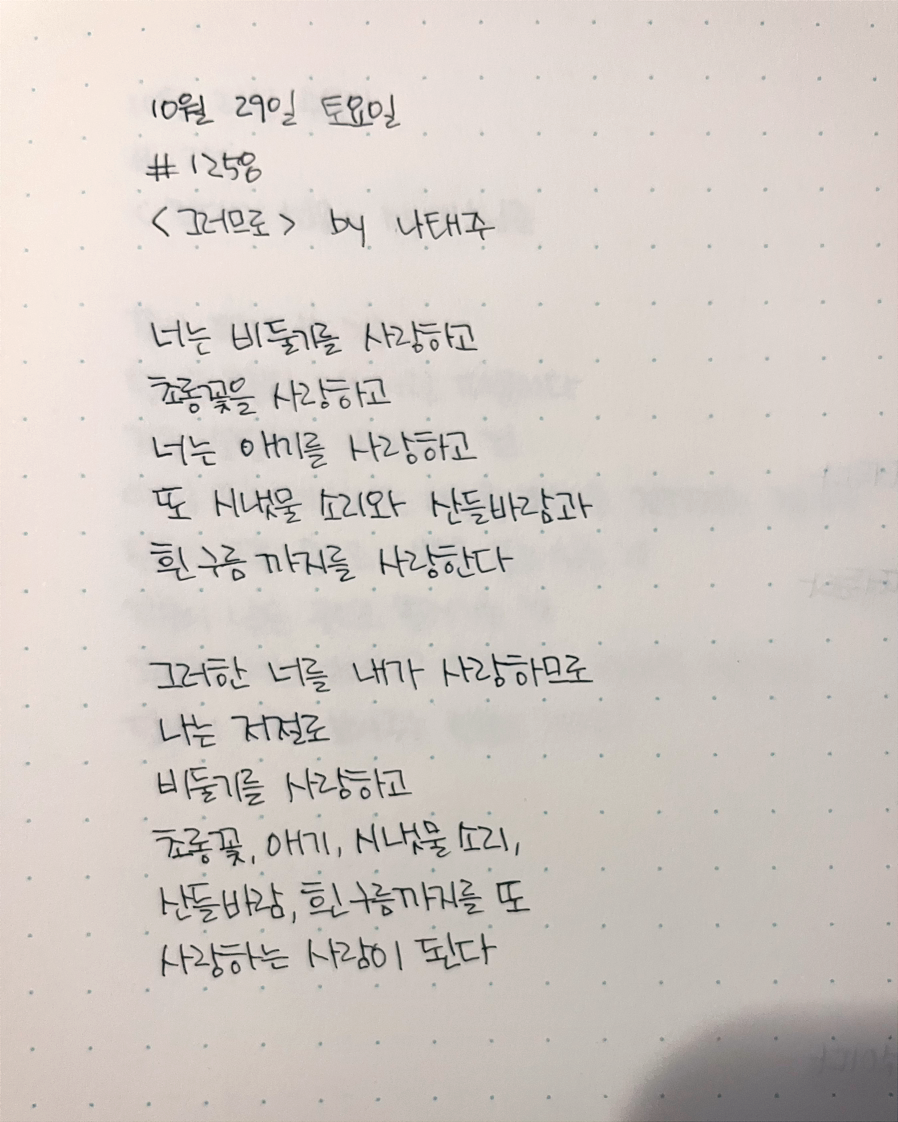 10월 29일 토요일
#1258
<그러므로> by 나태주
너는 비둘기를 사랑하고
초롱꽃을 사랑하고
너는 애기를 사랑하고
또 시냇물 소리와 산들바람과
흰 구름 까지를 사랑한다
그러한 너를 내가 사랑하므로
나는 저절로
비둘기를 사랑하고
초롱꽃, 애기, 시냇물 소리,
산들바람, 흰 구름까지를 또
사랑하는 사람이 된다